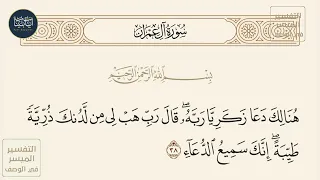 سُورَةُ آلِ عِمْرَان
بِسْمِ اللَّهِ الرَّحْمَٰنِ الرَّحِيمِ
هُنَالِكَ دَعَا زَكَرِيَّا رَبَّهُۥ ۖ قَالَ رَبِّ هَبْ لِى مِن لَّدُنكَ ذُرِّيَّةً
طَيِّبَةً ۖ إِنَّكَ سَمِيعُ ٱلدُّعَآءِ ٣٨
التفسير
الميسر
في الوصف
التفسير
الميسر
في الوصف